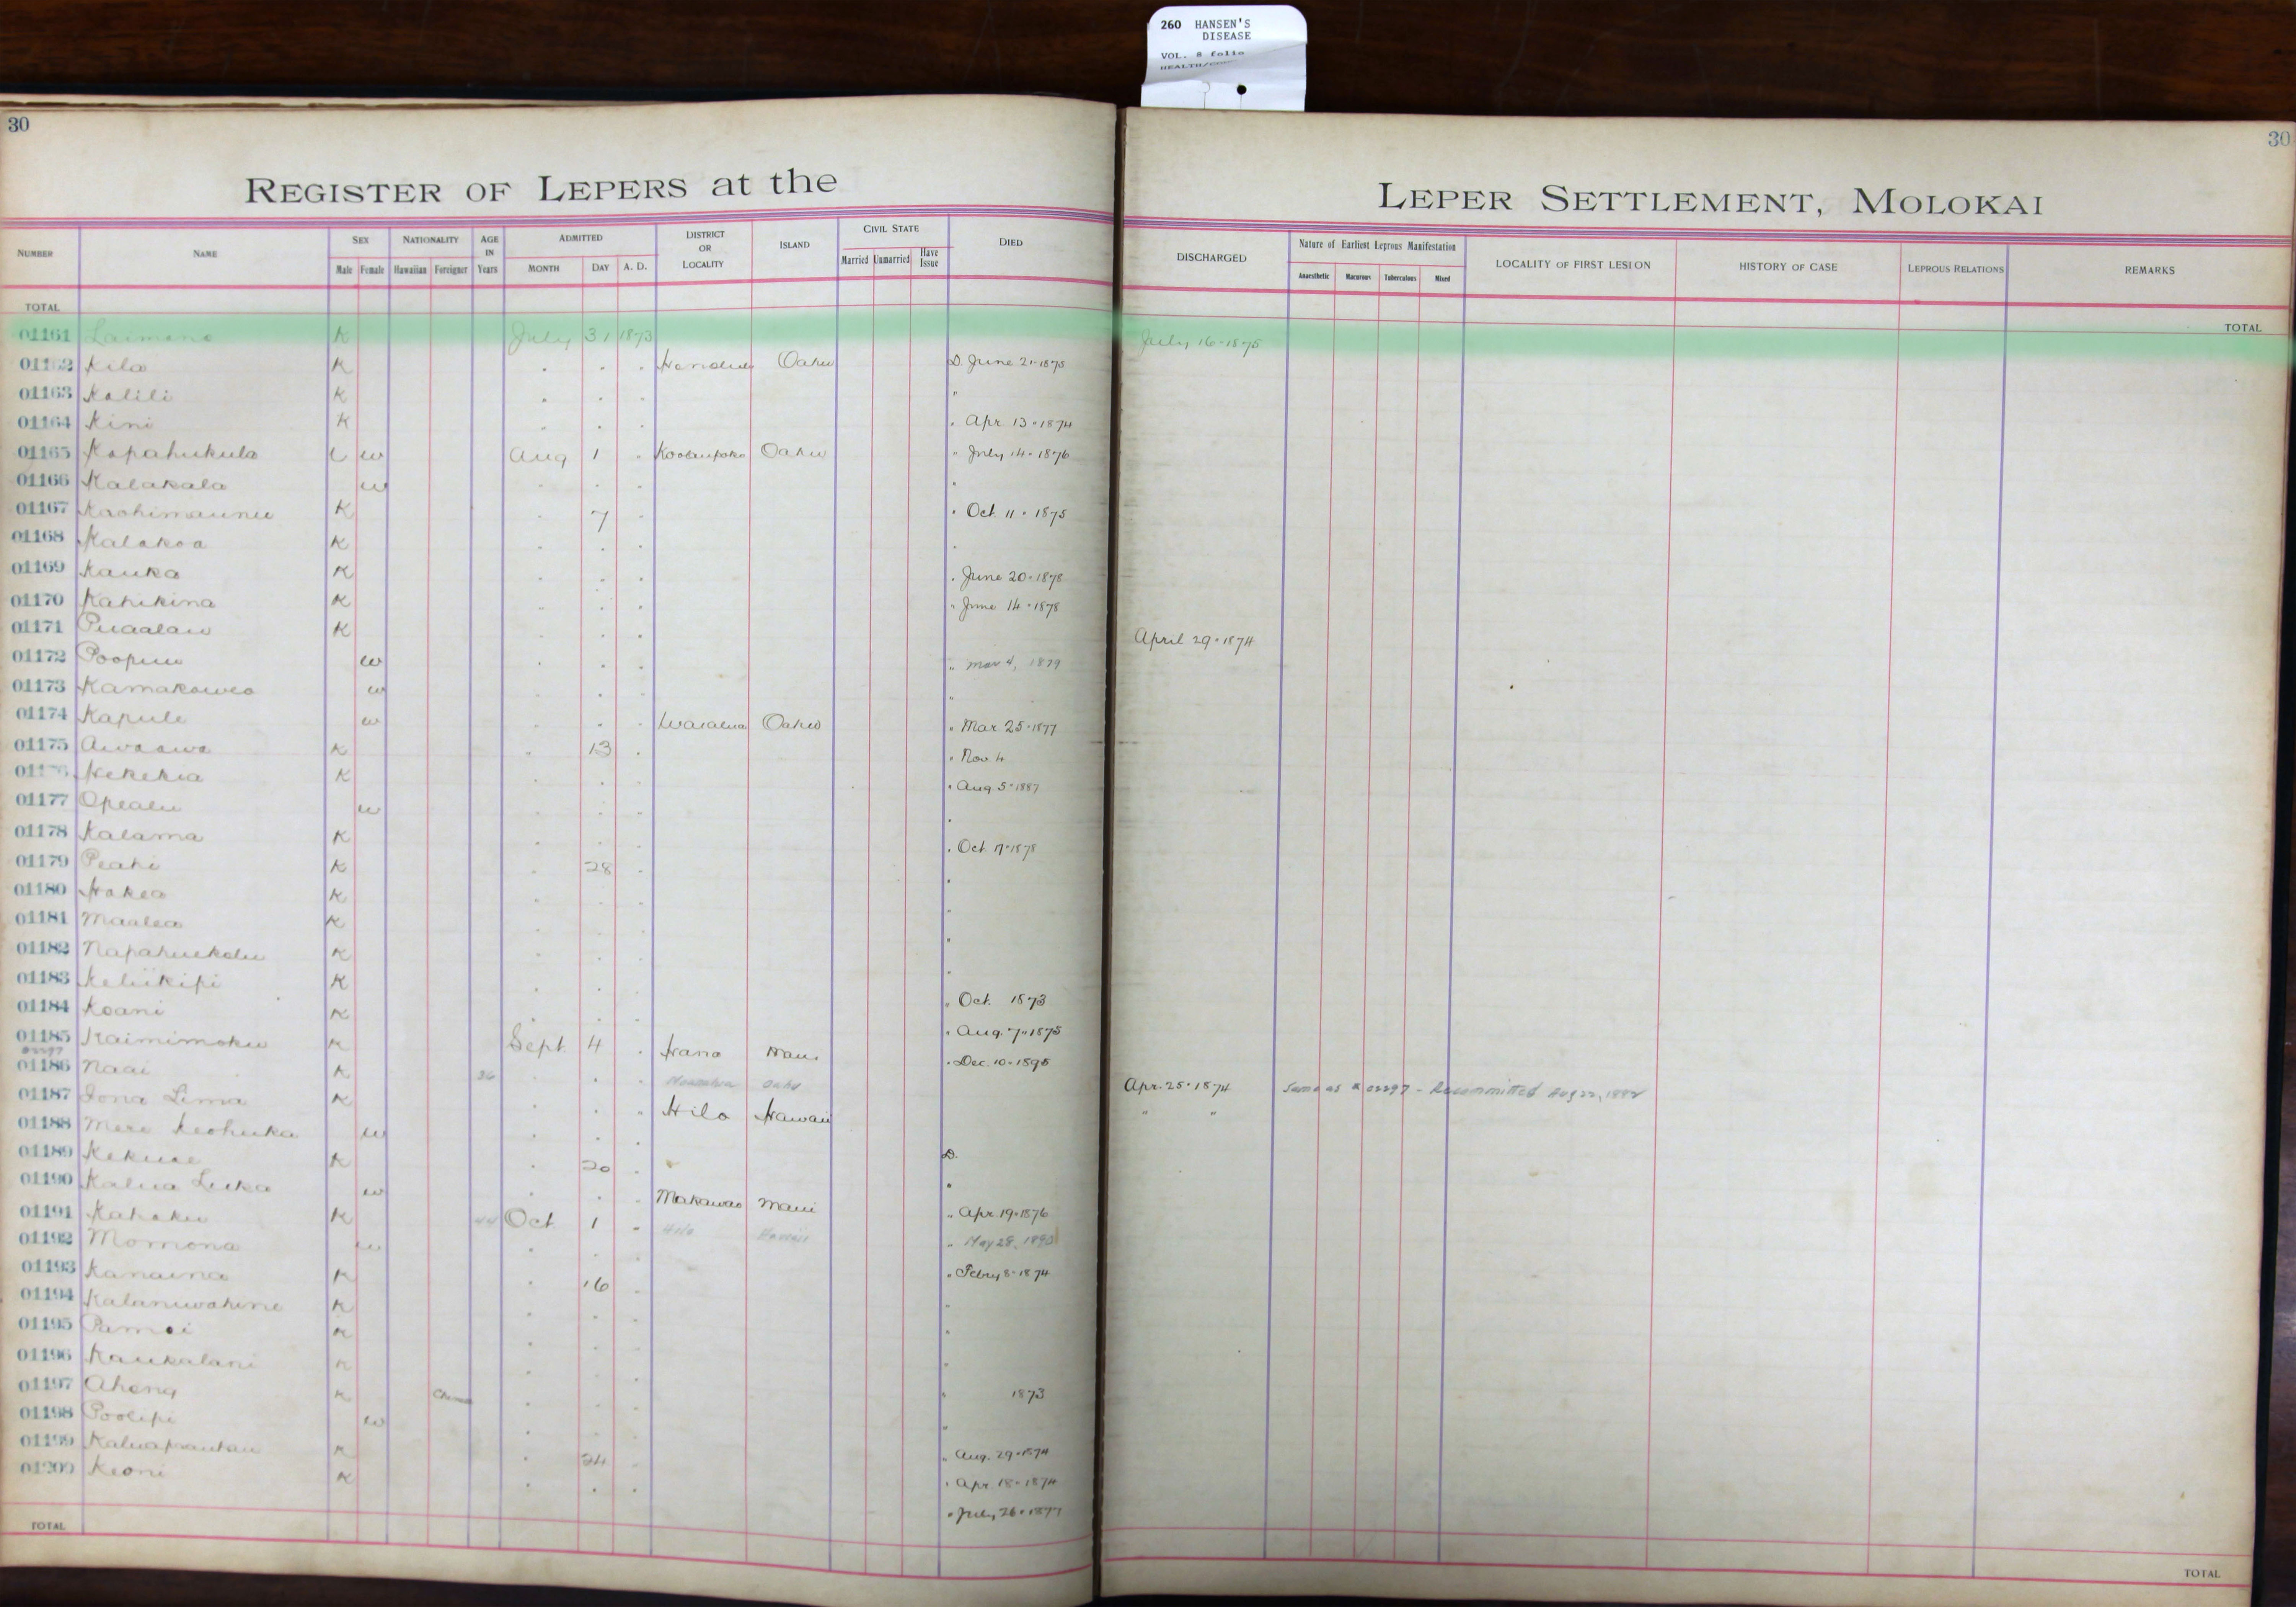 260 HANSEN'S
DISEASE
VOL. 8 folio
30
30
REGISTER OF LEPERS at the LEPER SETTLEMENT, MOLOKAI
NUMBER NAME SEX NATIONALITY AGE IN Years ADMITTED DISTRICT OR LOCALITY ISLAND CIVIL STATE DIED DISCHARGED Nature of Earliest Leprous Manifestation LOCALITY OF FIRST LESION HISTORY OF CASE LEPROUS RELATIONS REMARKS
Male Female Hawaiian Foreigner MONTH DAY A. D. Married Unmarried Have Issue Anaesthetic Macurous Tuberculous Mixed
TOTAL TOTAL
01161 Laimana K July 31 1873 July 16-1875
01162 Kila K " " " Honolulu Oahu D. June 21-1875
01163 Kalili K " " " "
01164 Kini K " " " " Apr. 13-1874
01165 Kapahukula w Aug 1 " Koolaupoko Oahu " July 14-1876
01166 Kalakala w " " " "
01167 Kaohimaunu K " 7 " " Oct. 11-1875
01168 Kalakoa K " " " "
01169 Kauka K " " " " June 20-1878
01170 Kahikina K " " " " June 14-1878
01171 Puaalau K " " " April 29-1874
01172 Poopuu w " " " " Mar 4, 1879
01173 Kamakawea w " " " "
01174 Kapule w " " " Waialua Oahu " Mar. 25-1877
01175 Awaawa K " 13 " " Nov. 4
01176 Kekekia K " " " " Aug. 5-1887
01177 Opealu w " " " "
01178 Kalama K " " " " Oct. 17-1878
01179 Peahi K " 28 " "
01180 Hakea K " " " "
01181 Maalea K " " " "
01182 Napahuekolu K " " " "
01183 Keliikipi K " " " " Oct. 1873
01184 Koani K " " " " Aug. 7-1875
01185 Kaimimoku K Sept. 4 " Hana Maui " Dec. 10-1895
01186 Naai K 36 " " " Oahu Apr. 25-1874 Same as # 02297 - Recommitted Aug 22, 1882
01187 Iona Lima K " " " Hilo Hawaii " "
01188 Mere Keohuka w " " "
01189 Kekuae K " 20 " D.
01190 Kalua Luka w " " " Makawao Maui "
01191 Kahaku K 44 Oct 1 " Hilo Hawaii " Apr. 19-1876
01192 Momona w " " " May 28, 1890
01193 Kanaina K " 16 " " Febry 8-1874
01194 Kalaniwahine K " " " "
01195 Pamai K " " " "
01196 Kaukalani K " " " "
01197 Ahong K " " " " 1873
01198 Poolipi w " " " "
01199 K " 24 " " Aug. 29-1874
01200 Keoni K " " " " Apr. 18-1874
" July 26-1877
TOTAL TOTAL